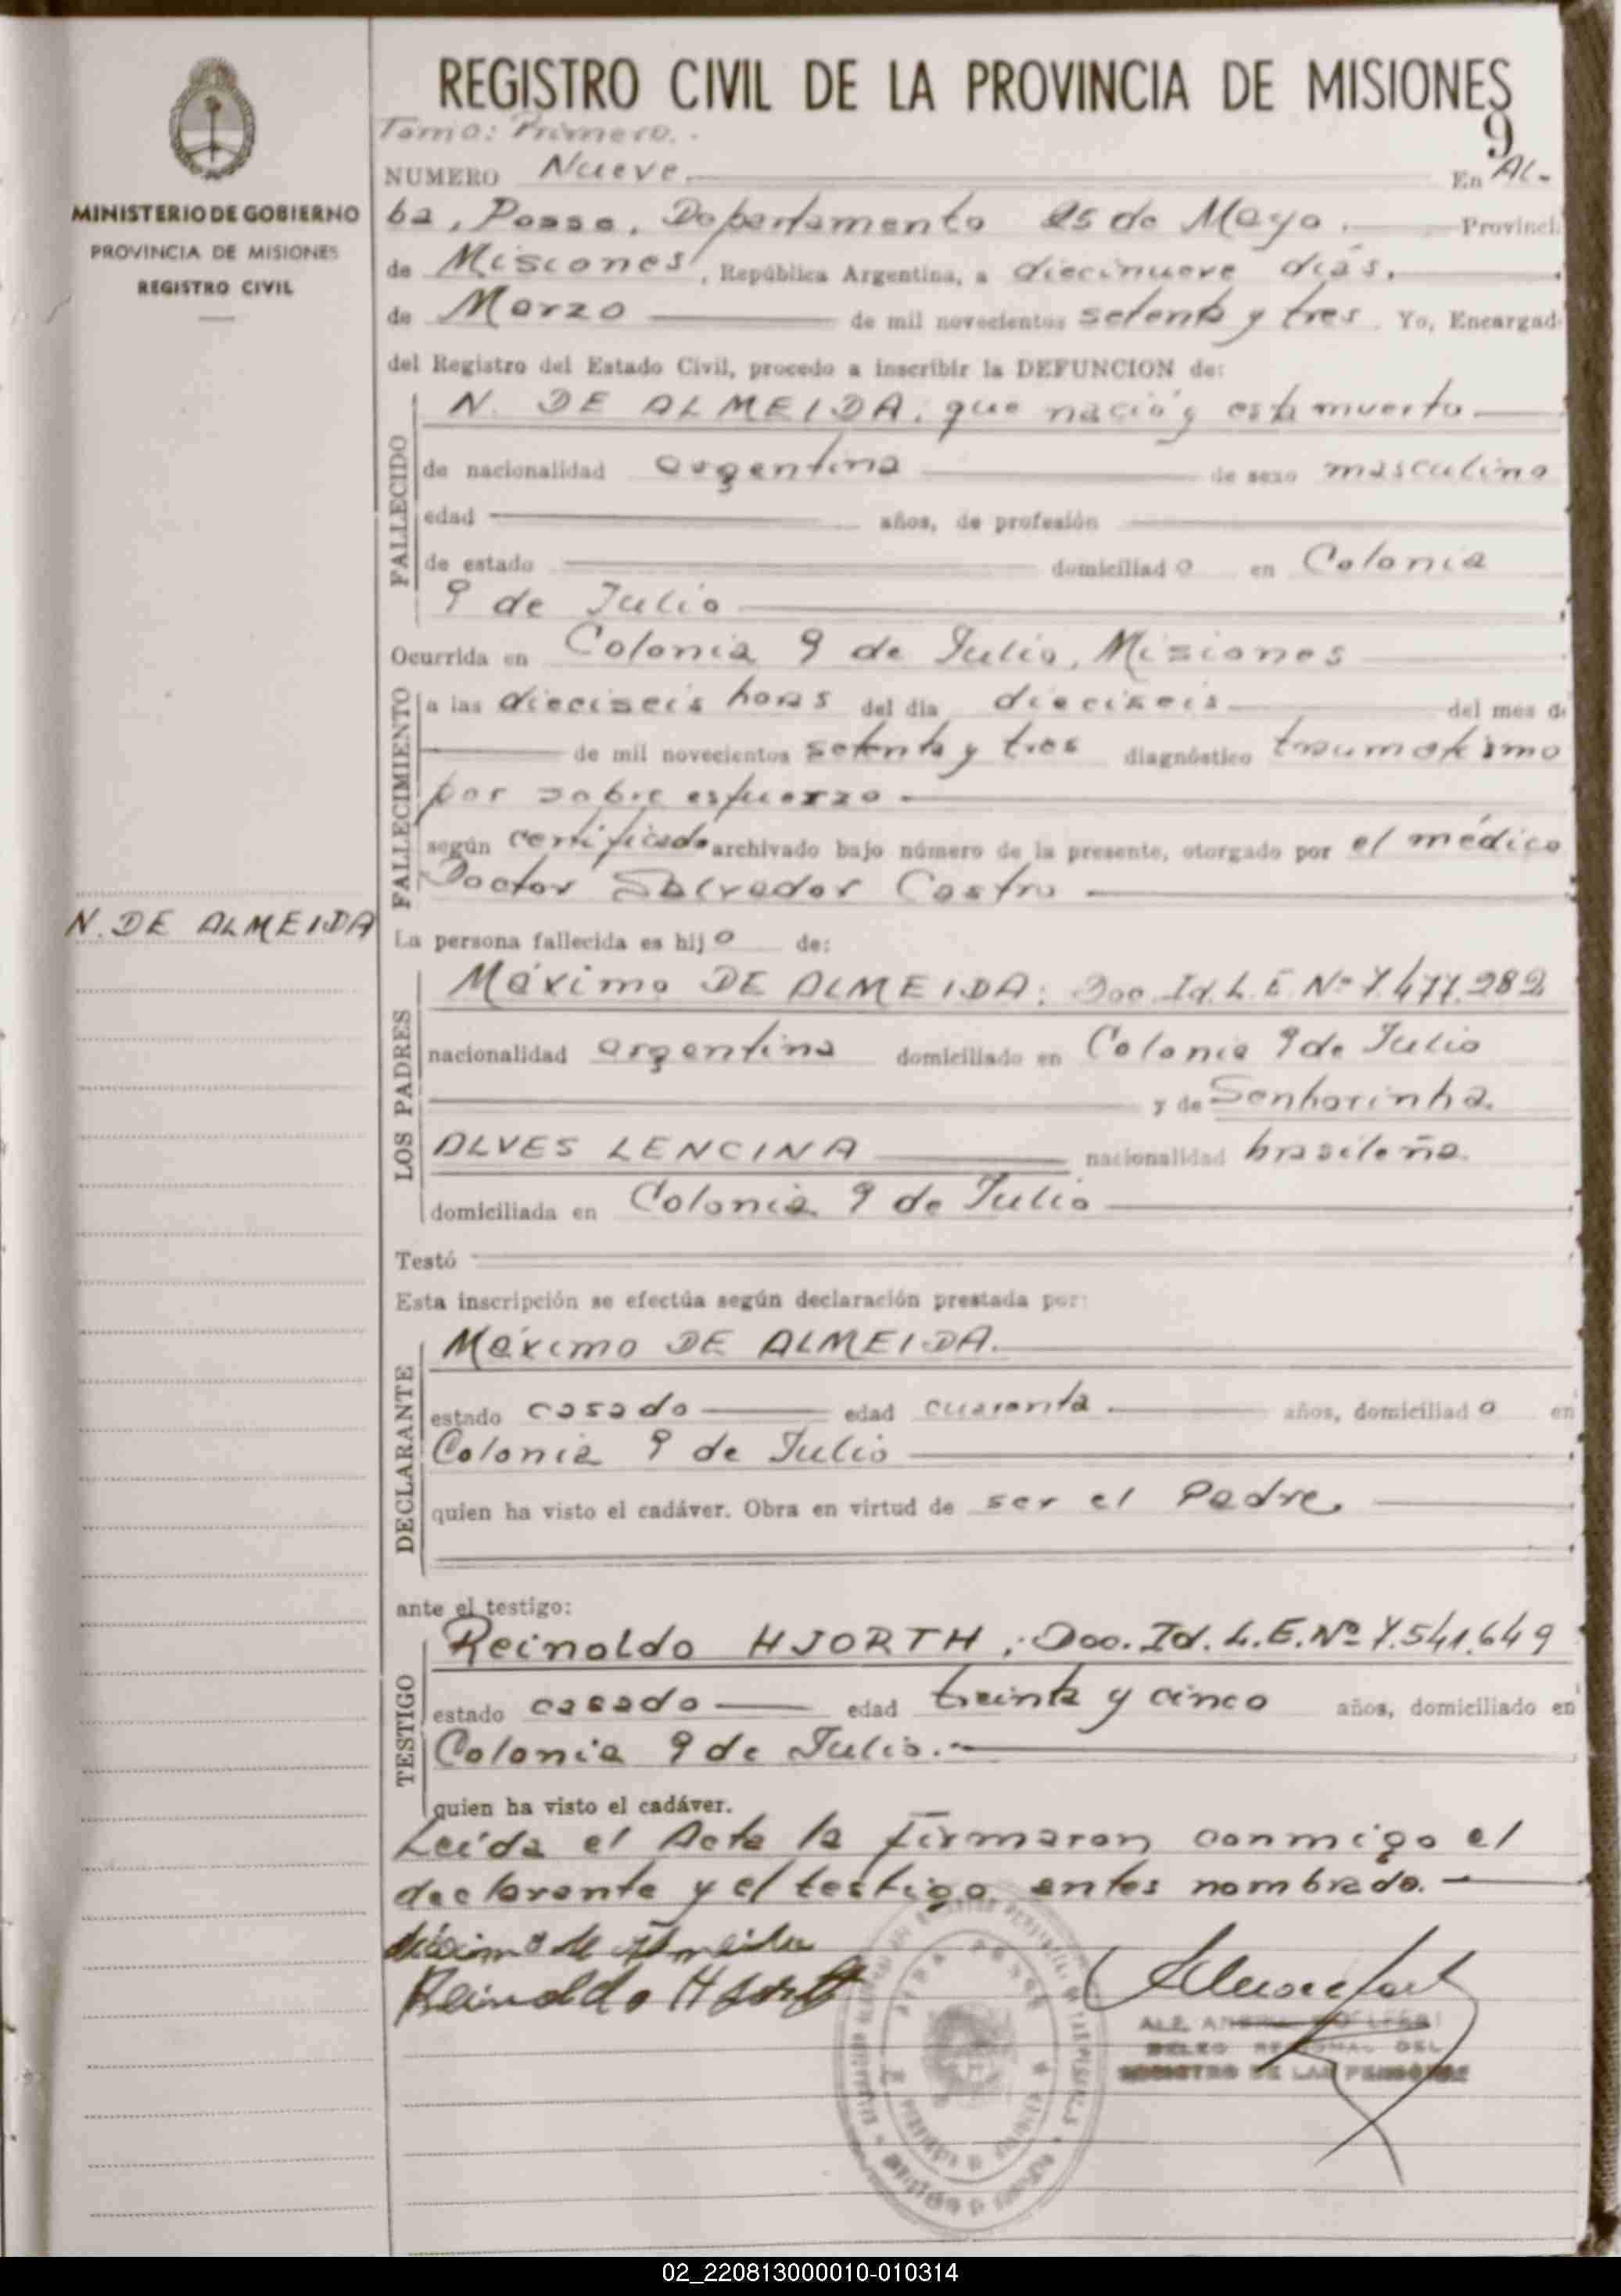 REGISTRO CIVIL DE LA PROVINCIA DE MISIONES
Tomo: Primero.
9
NUMERO Nueve. En Al-
ba, Posse, Departamento 25 de Mayo. Provinci
de Misiones, República Argentina, a diecinueve días.
de Marzo de mil novecientos setenta y tres. Yo, Encargad
del Registro del Estado Civil, procedo a inscribir la DEFUNCION de:
MINISTERIO DE GOBIERNO
PROVINCIA DE MISIONES
REGISTRO CIVIL
FALLECIDO
N. DE ALMEIDA. que nació y está muerto
de nacionalidad argentina de sexo masculino
edad años, de profesión
de estado domiciliado en Colonia
9 de Julio
Ocurrida en Colonia 9 de Julio, Misiones
FALLECIMIENTO
a las dieciseis horas del día dieciseis del mes d
de mil novecientos setenta y tres diagnóstico traumatismo
por sobre esfuerzo
según certificado archivado bajo número de la presente, otorgado por el médico
Doctor Salvador Castro
N. DE ALMEIDA
La persona fallecida es hijo de:
LOS PADRES
Máximo DE ALMEIDA: Doc. Id. L. E Nº 7.477.282
nacionalidad argentina domiciliado en Colonia 9 de Julio
y de Senhorinha.
ALVES LENCINA nacionalidad brasileña.
domiciliada en Colonia 9 de Julio
Testó
Esta inscripción se efectúa según declaración prestada por:
DECLARANTE
Máximo DE ALMEIDA.
estado casado edad cuarenta años, domiciliado en
Colonia 9 de Julio
quien ha visto el cadáver. Obra en virtud de ser el Padre.
ante el testigo:
TESTIGO
Reinoldo HJORTH; Doc. Id. L. E. Nº 7.541.649
estado casado edad treinta y cinco años, domiciliado en
Colonia 9 de Julio.
quien ha visto el cadáver.
Leída el Acta la firmaron conmigo el
declarante y el testigo antes nombrado.
Máximo de Almeida
Reinoldo Hjorth
REGISTRO DE LAS PERSONAS
02_220813000010-010314